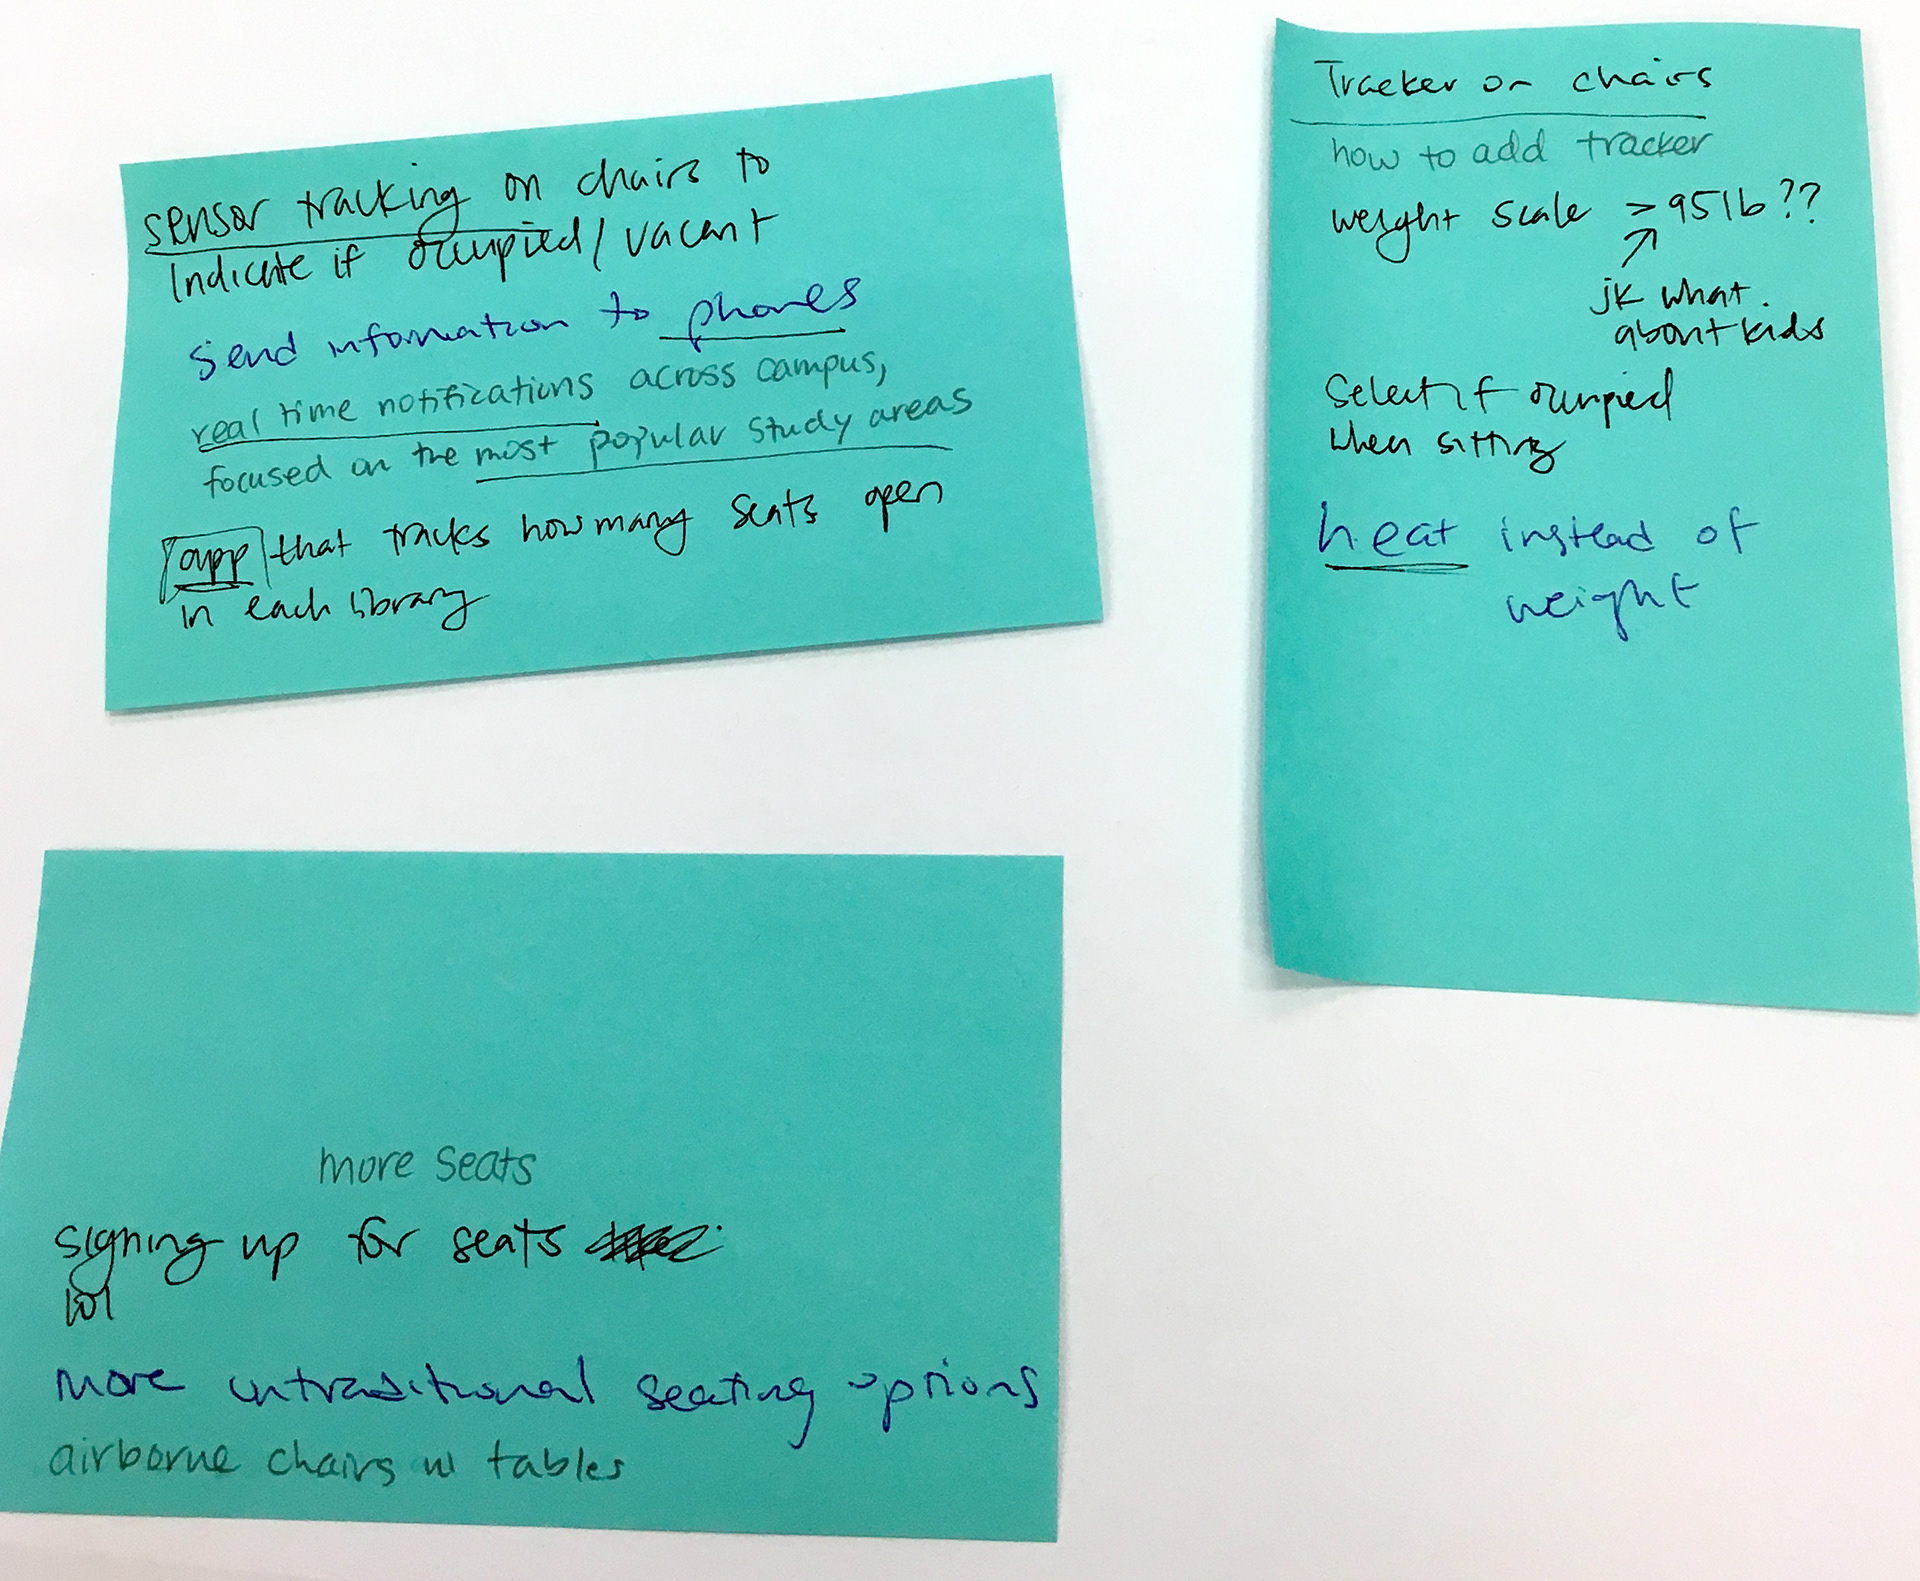 sensor tracking on chairs to
Indicate if occupied/vacant
send information to phones
real time notifications across campus,
focused on the most popular study areas
app that tracks how many seats open
in each library
Tracker on chairs
how to add tracker
weight scale > 95lb??
jk what
about kids
Select if occupied
when sitting
heat instead of
weight
more seats
signing up for seats
lol
more untraditional seating options
airborne chairs w tables